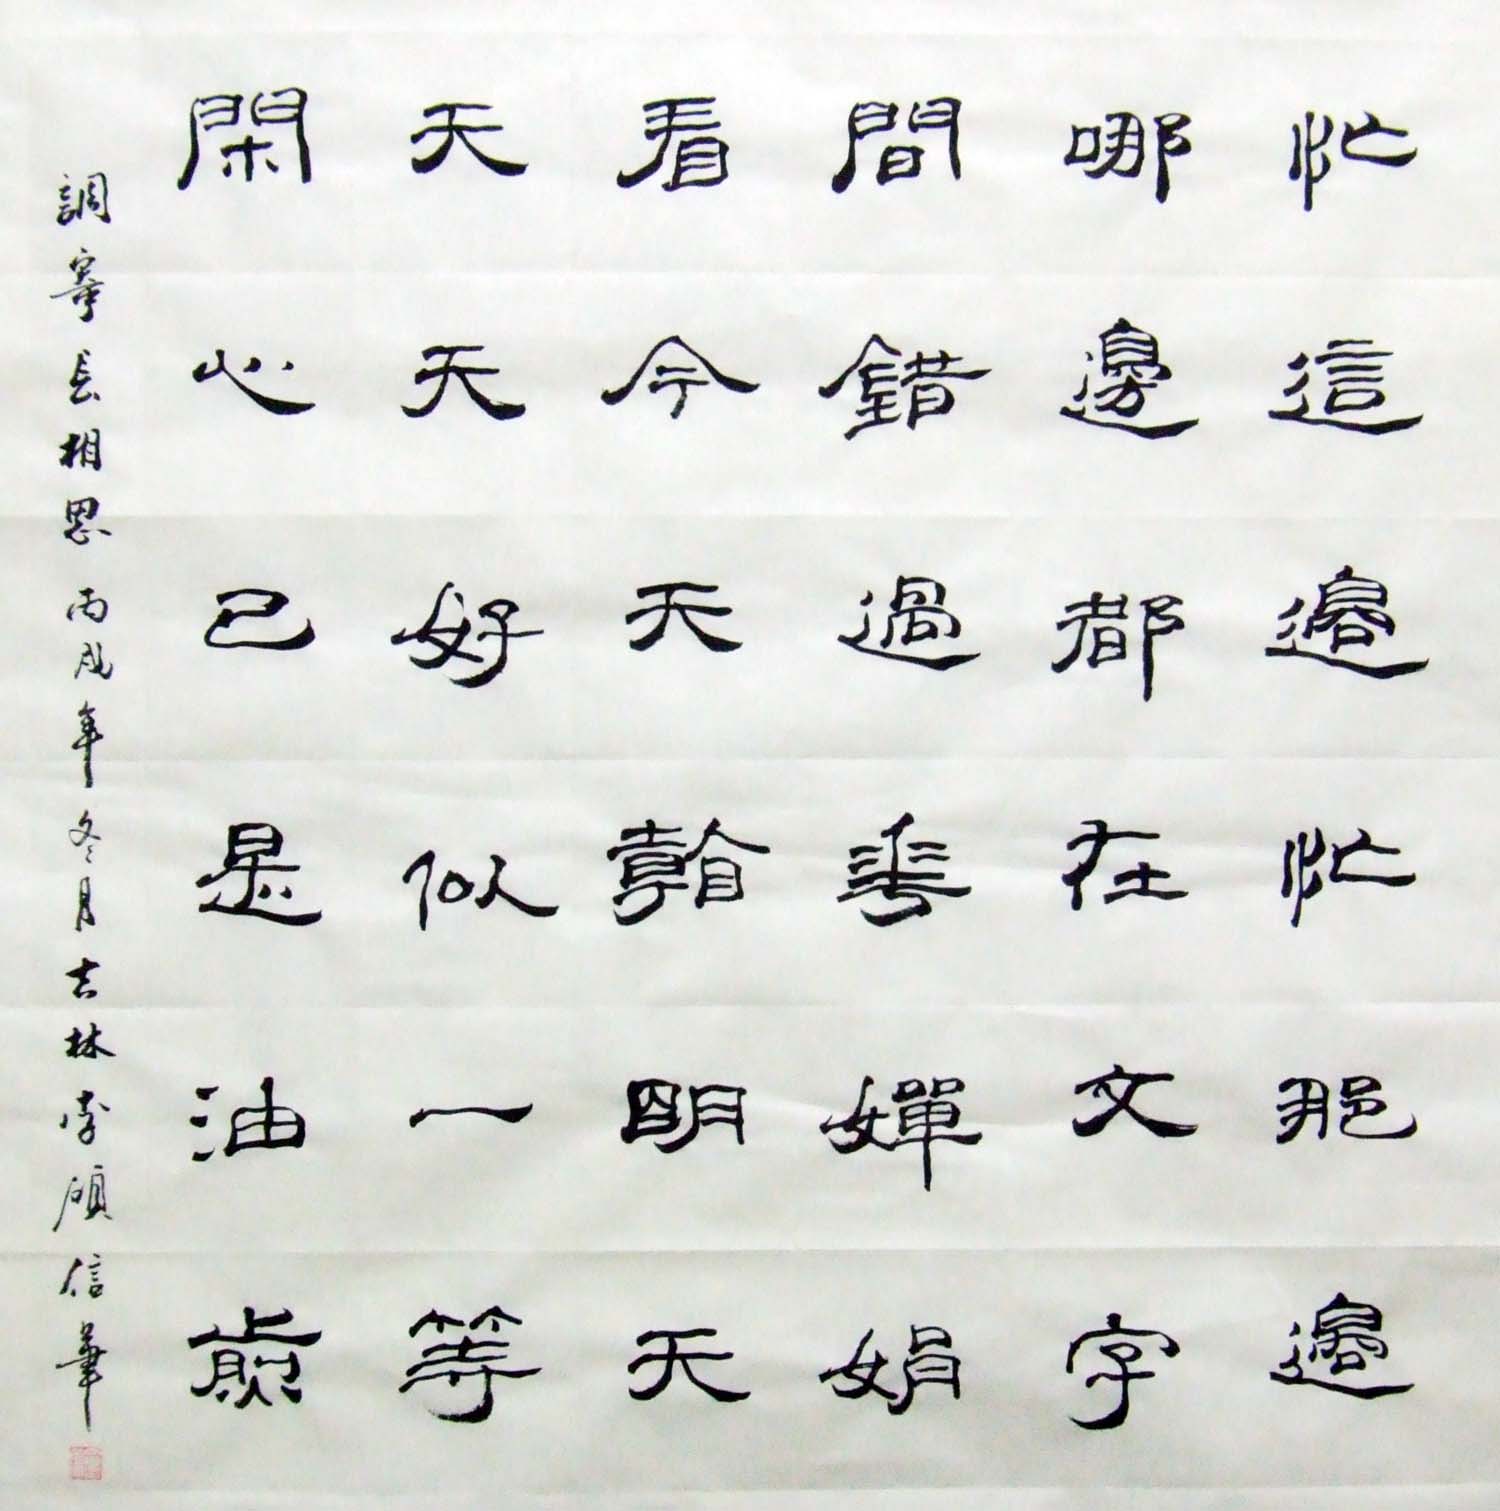 忙這邊忙那邊
哪邊都在文字
間錯過花嬋娟
看今天翰明天
天天好似一等
閑心已是油煎
調寄長相思丙戌年冬月吉林李碩信筆